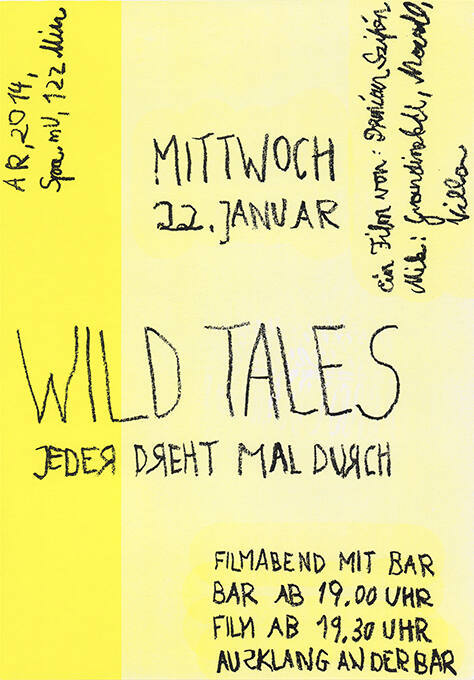 AR, 2014,
Spa. mU, 122 Min
ein Film von: Damián Szifón
Mit: Grandinetti,
Villa
MITTWOCH
22. JANUAR
WILD TALES
JEDER DREHT MAL DURCH
FILMABEND MIT BAR
BAR AB 19.00 UHR
FILM AB 19.30 UHR
AUSKLANG AN DER BAR